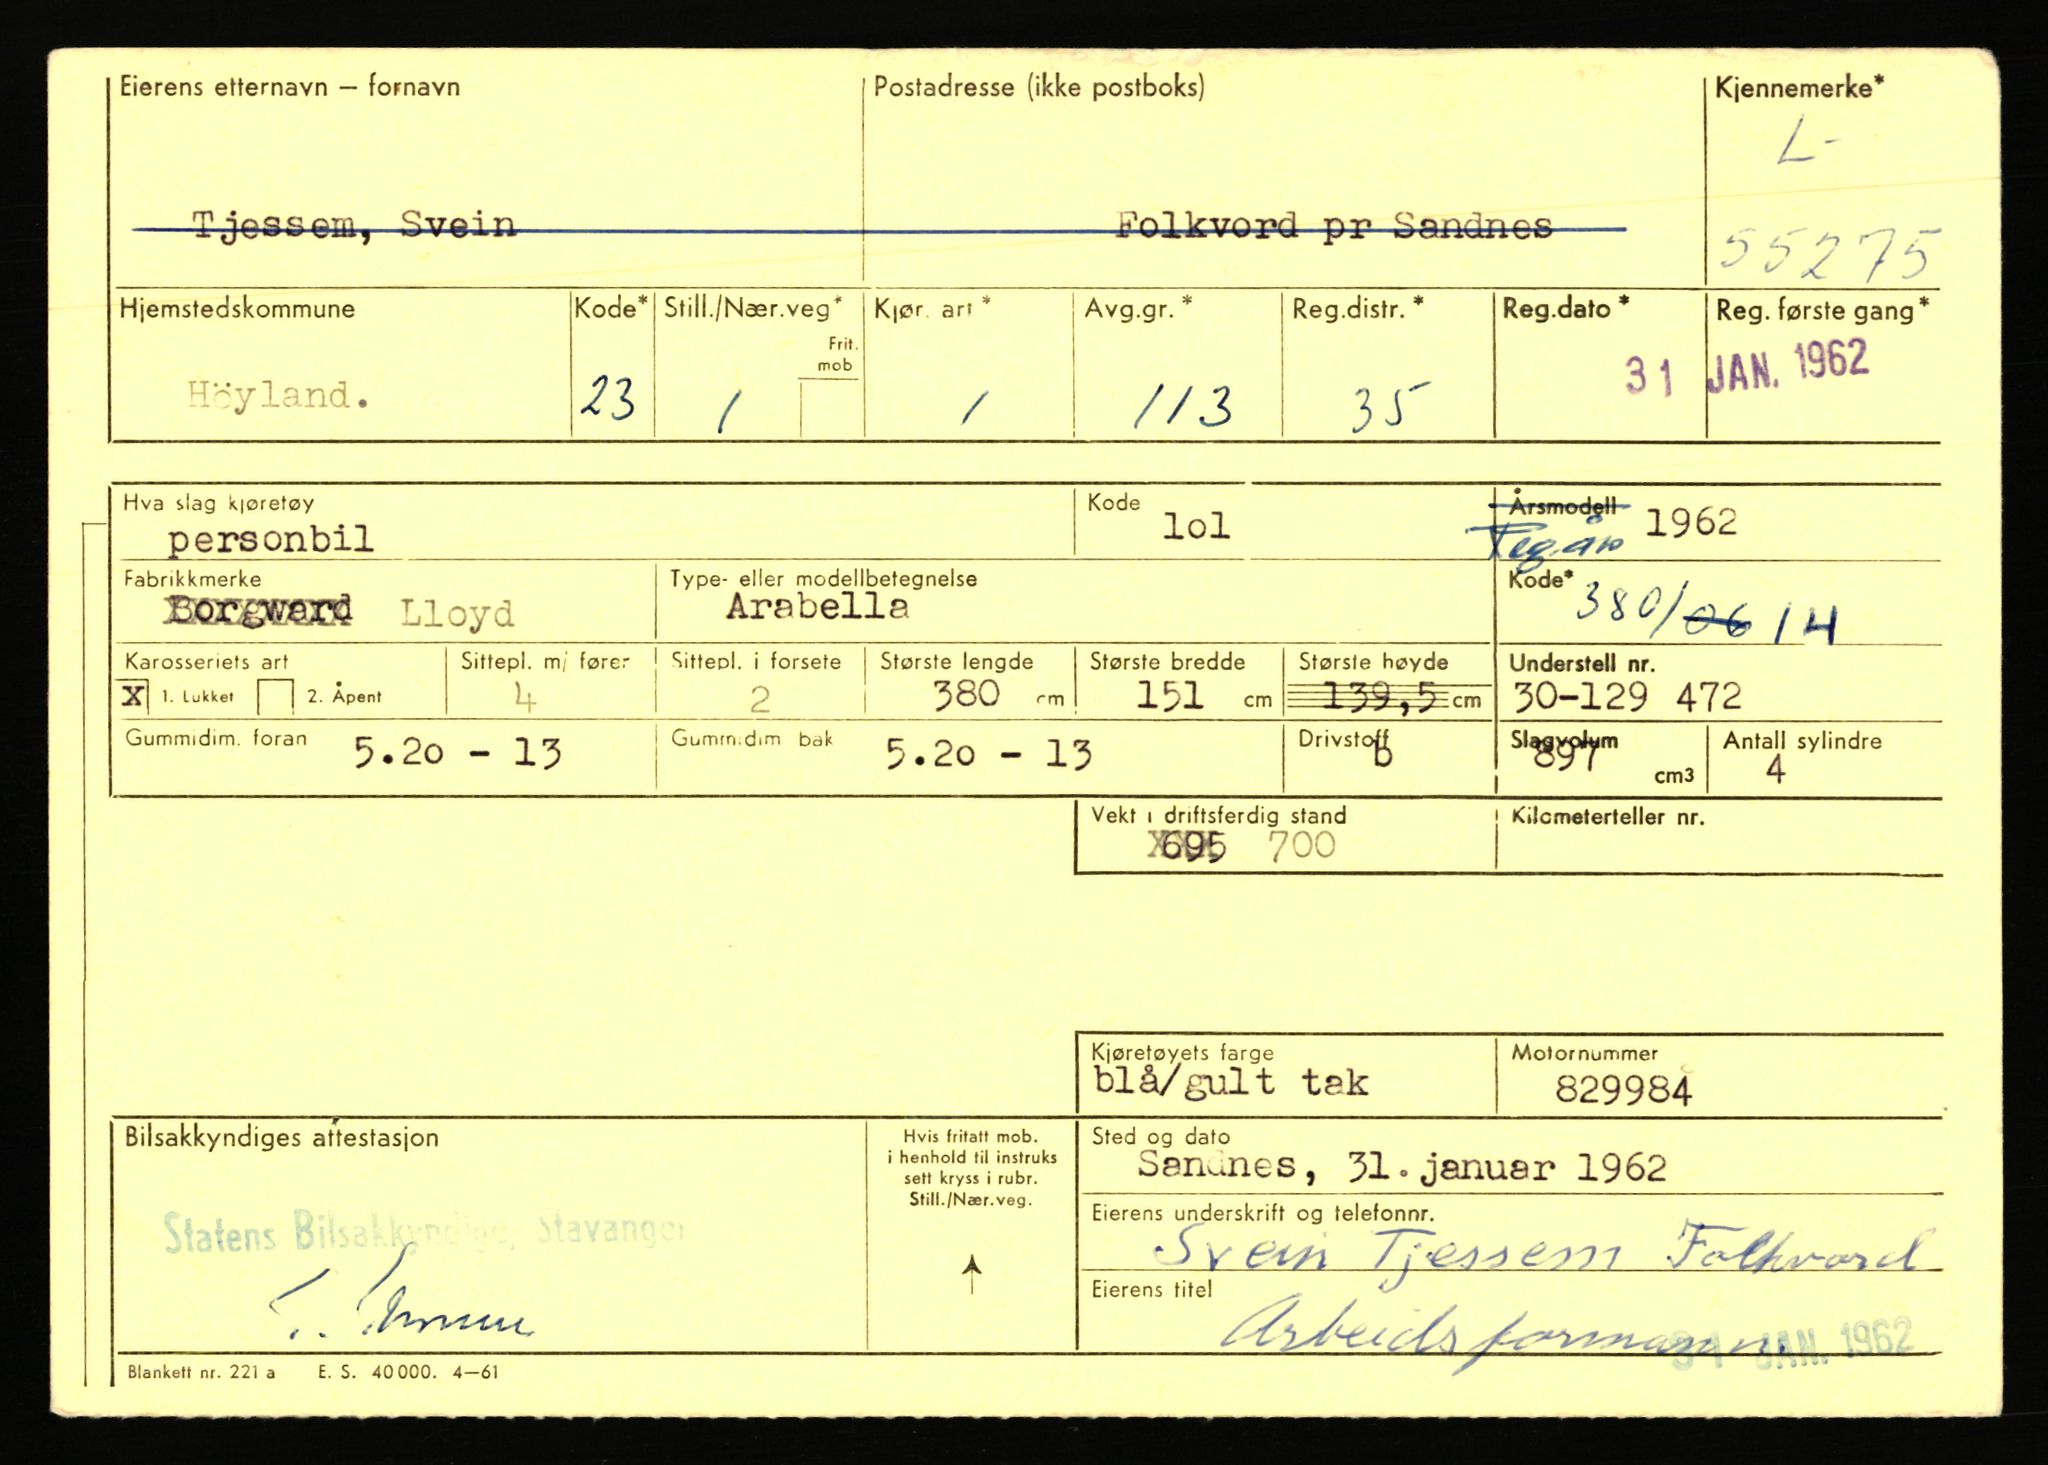 Eierens etternavn – fornavn Postadresse (ikke postboks) Kjennemerke*
L-
Tjessem, Svein Folkvord pr Sandnes 55275
Hjemstedskommune Kode* Still./Nær.veg* Kjør. art* Avg.gr.* Reg.distr.* Reg.dato* Reg. første gang*
Frit. mob
Höyland. 23 1 1 113 35 31 JAN. 1962
Hva slag kjøretøy Kode Årsmodell
personbil lol 1962
Reg.år
Fabrikkmerke Type- eller modellbetegnelse Kode*
Borgward Lloyd Arabella 380/06 14
Karosseriets art Sittepl. m/ fører Sittepl. i forsete Største lengde Største bredde Største høyde Understell nr.
X 1. Lukket 2. Åpent 4 2 380 cm 151 cm 139,5 cm 30-129 472
Gummidim. foran 5.2o - 13 Gummidim bak 5.2o - 13 Drivstoff b Slagvolum 897 cm3 Antall sylindre 4
Vekt i driftsferdig stand Kilometerteller nr.
695 700
Kjøretøyets farge Motornummer
blå/gult tak 829984
Bilsakkyndiges attestasjon Hvis fritatt mob. i henhold til instruks sett kryss i rubr. Still./Nær.veg. Sted og dato
Sandnes, 31.januar 1962
Eierens underskrift og telefonnr.
Statens Bilsakkyndige, Stavanger Svein Tjessem Folkvord
Eierens titel
Arbeidsformann.
31 JAN. 1962
Blankett nr. 221 a E. S. 40 000. 4–61